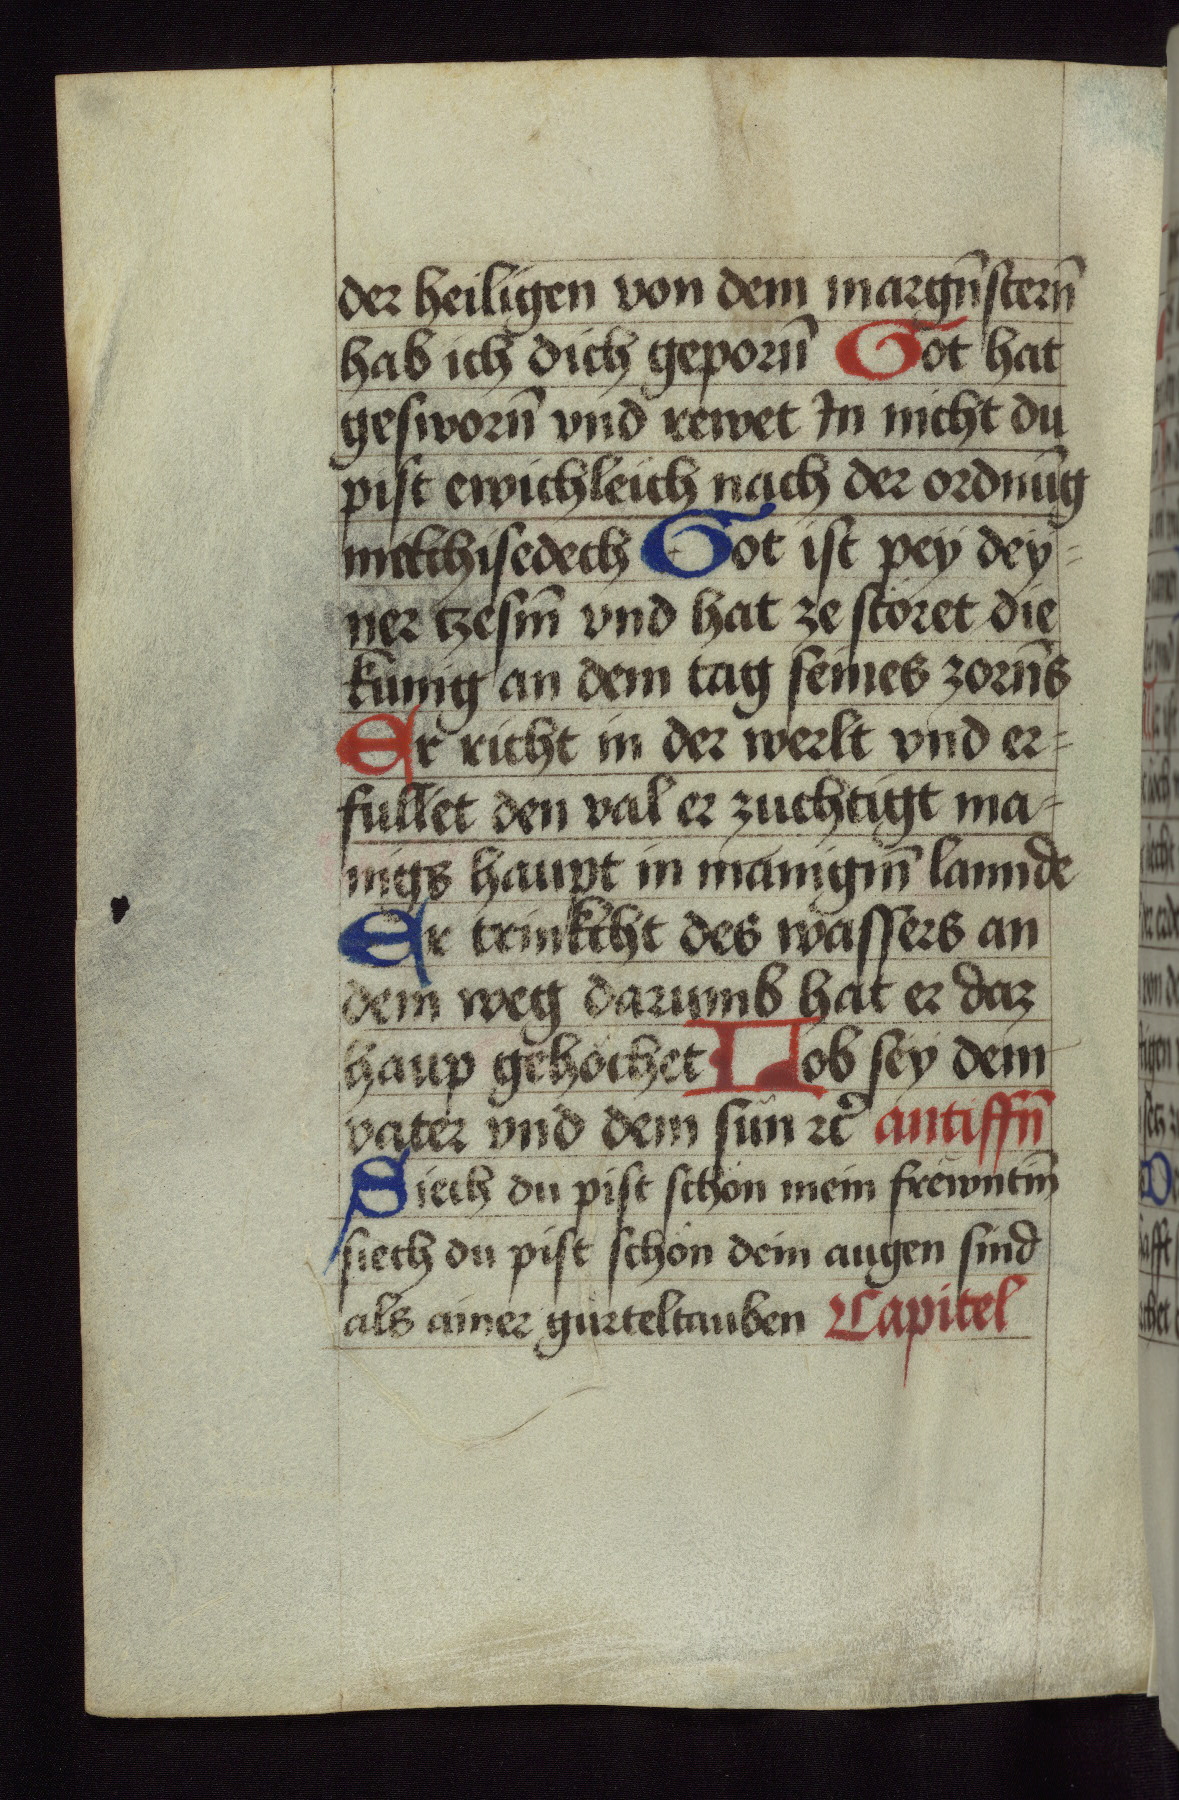 der heiligen von dem margn̄stern̄
hab ich dich geporn̄ Got hat
gesworn̄ vnd rewet In nicht du
pist ewichleich nach der ordnūg
melchisedech Got ist pey dey=
ner tzesm̄ vnd hat ze störet die
künig an dem tag seines zorn̄s
Er richt in der werlt vnd er=
fullet den val er zuchtigt ma=
nigs haupt in manigm̄ lannde
Er trinkcht des wassers an
dem weg darumb hat er daz
haup gehöchet Lob sey dem
vater vnd dem sün ꝛc̄ antiffn̄
Siech du pist schön mein frewntin̄
siech du pist schön dein augen sind
als ainer gürteltauben Capitel